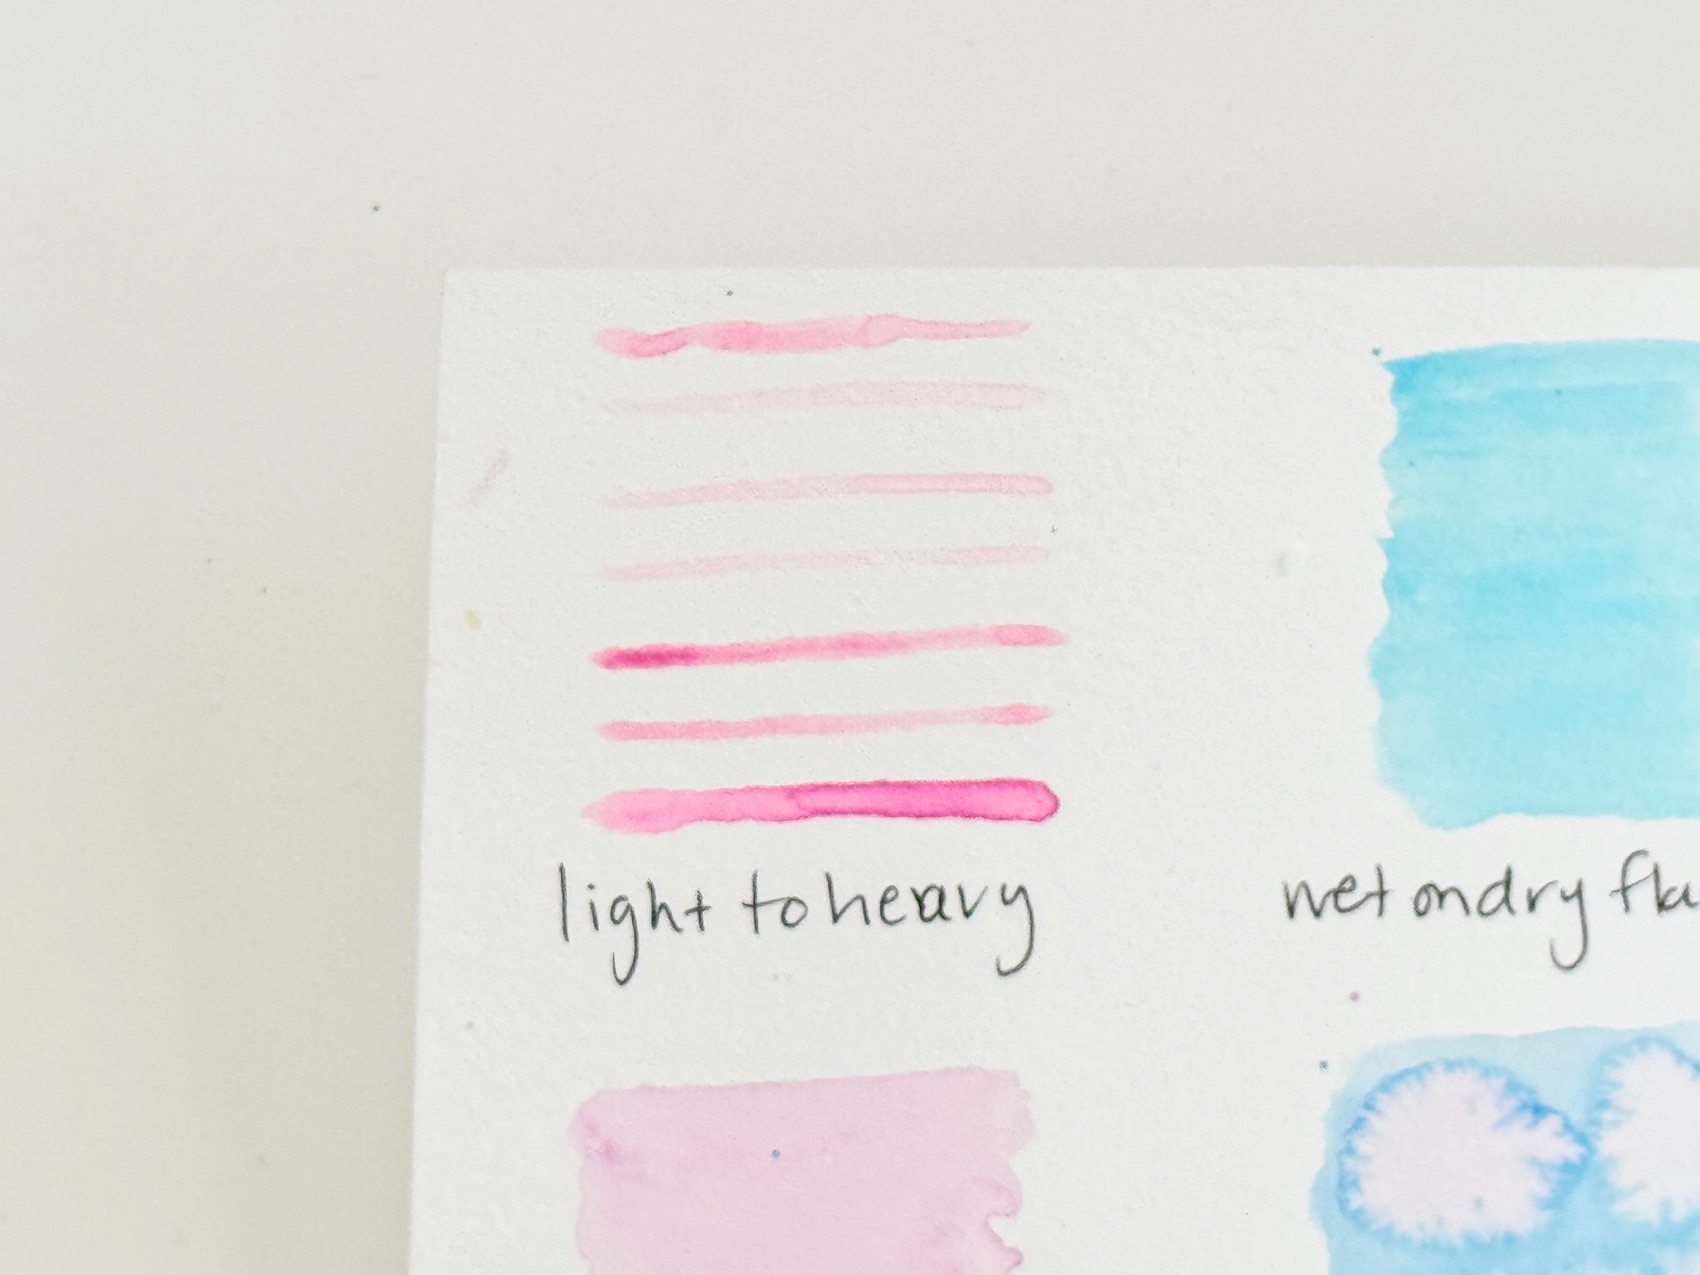 light to heavy
wet on dry